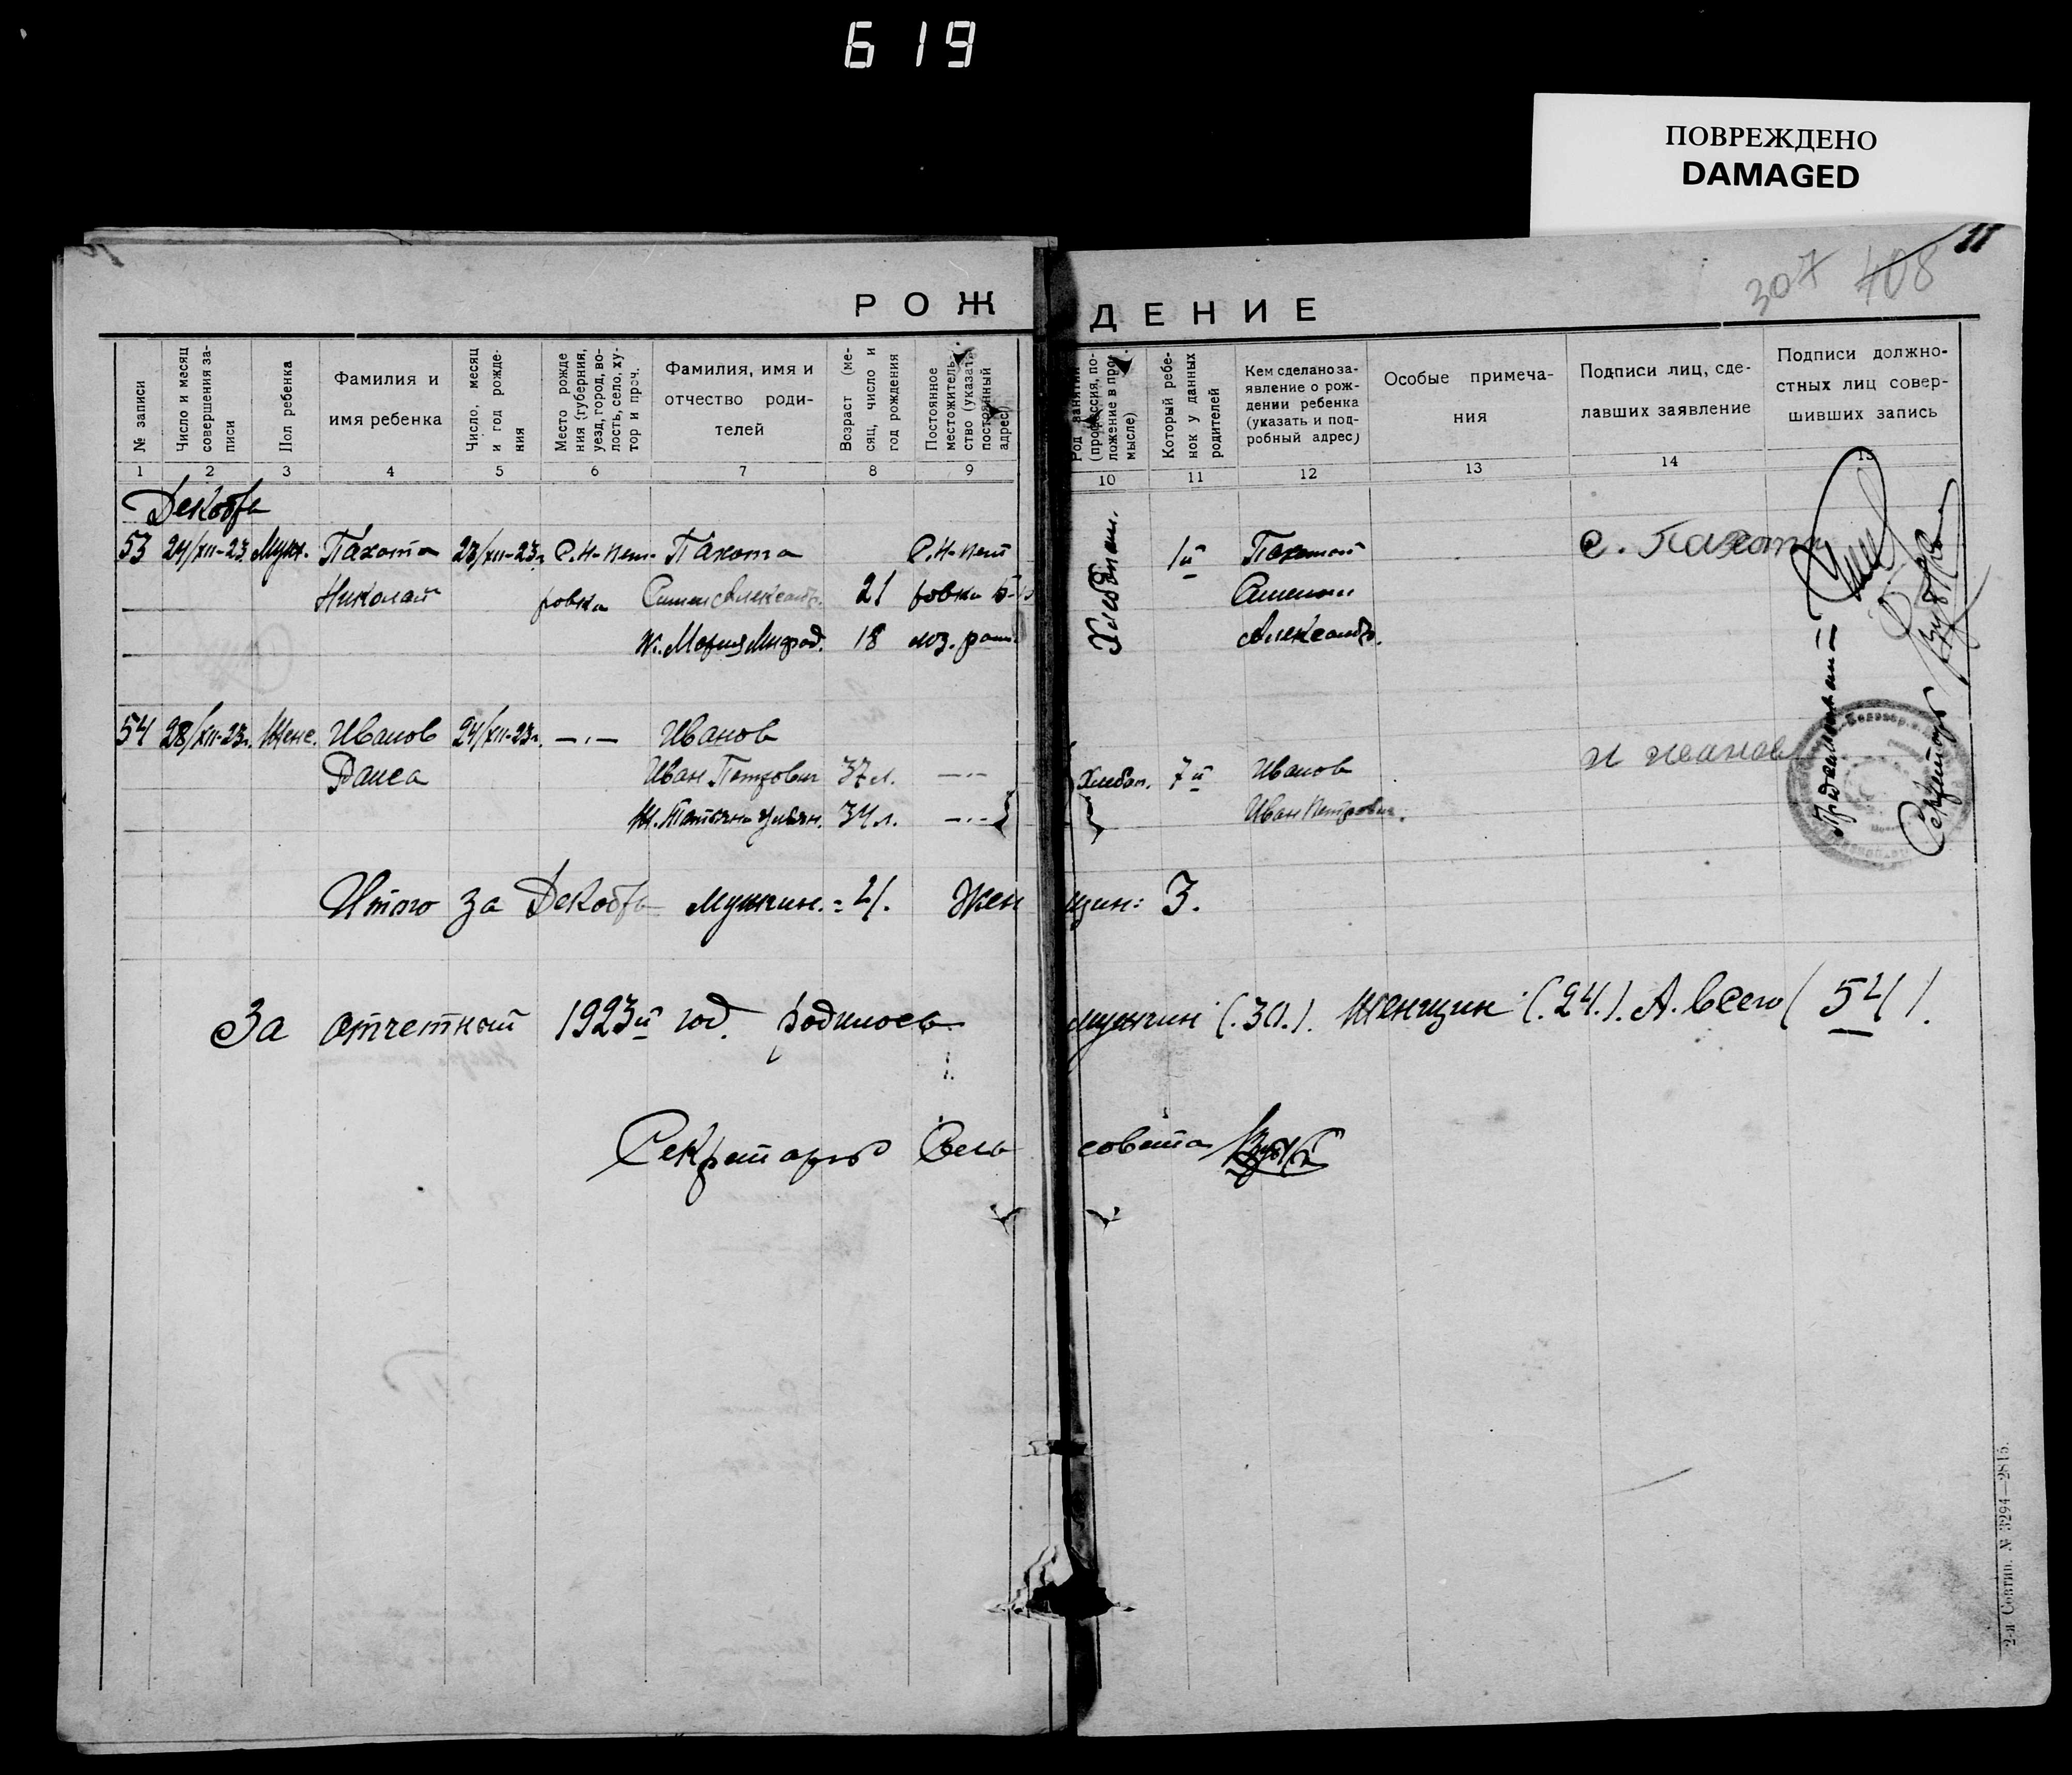 619
ПОВРЕЖДЕНО
DAMAGED
11
307 408
РОЖДЕНИЕ
№ записи
Число и месяц совершения за-
писи
Пол ребенка
Фамилия и
имя ребенка
Число, месяц
и год рожде-
ния
Место рожде
ния (губерния,
уезд, город, во-
лость, село, ху-
тор и проч.
Фамилия, имя и
отчество роди-
телей
Возраст (ме-
сяц, число и
год рождения
Постоянное
местожитель-
ство (указать
постоянный
адрес)
Род занятий
(профессия, по-
ложение в про-
мысле)
Который ребе-
нок у данных
родителей
Кем сделано за-
явление о рож-
дении ребенка
(указать и под-
робный адрес)
Особые примеча-
ния
Подписи лиц, сде-
лавших заявление
Подписи должно-
стных лиц совер-
шивших запись
1 2 3 4 5 6 7 8 9 10 11 12 13 14 15
Декабрь
53 24/XII-23 Муж. Пахота 23/XII-23г. С.Н-Пет- Пахота С.Н-Пет Хлебопаш. 1й Пахотой С. Пахота
Николай ровка Семен Александр. 21 ровка Семеном
Ж. Мария 18 Александр.
54 28/XII-23г. Женс. Иванов 24/XII-23г. —·— Иванов
Раиса Иван Петрович 37 л. —·— Хлебоп. 7й Иванов И Иванов
Ж. Татьяна Ульян. 34 л. —·— Иван Петрович.
Секретарь
Итого за Декабрь мужчин. = 4. Женщин: 3.
За отчетный 1923й год родилось мужчин (.30.). Женщин (.24.). А всего (54).
Секретарь Сельсовета
2-я Совтип. № 3294—2815.